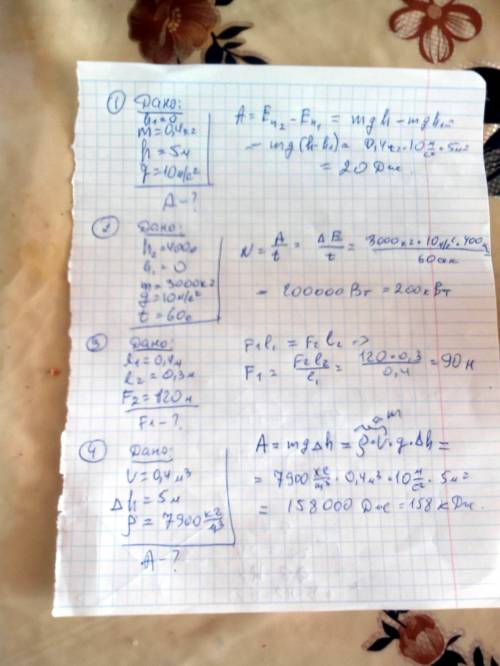 ① Дано:
h₁=0
m=0,4кг
h=5м
g=10м/с²
A-?
A = Eп₂ - Eп₁ = mgh - mgh₁=
= mg(h-h₁)= 0,4кг·10 м/с² · 5м=
= 20 Дж.
② Дано:
h₂=400м
h₁=0
m=3000кг
g=10м/с²
t=60с
N = A/t = ΔE/t = 3000кг·10м/с²·400м/60сек
= 200000 Вт = 200кВт
③ Дано:
l₁=0,4м
l₂=0,3м
F₂=120н
F₁-?
F₁l₁ = F₂l₂ =>
F₁ = F₂l₂/l₁ = 120·0,3/0,4 = 90н
④ Дано:
V=0,4м³
Δh=5м
ρ=7900 кг/м³
A-?
m
A = mgΔh = ρ·V·g·Δh =
= 7900 кг/м³ · 0,4м³ · 10 м/с² · 5м=
= 158000 Дж = 158кДж.